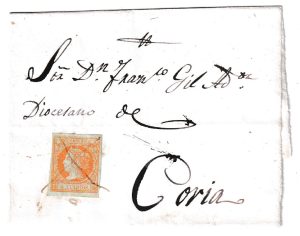 Sor. Dn. Franco. Gil Ador.
Diocesano de
Coria